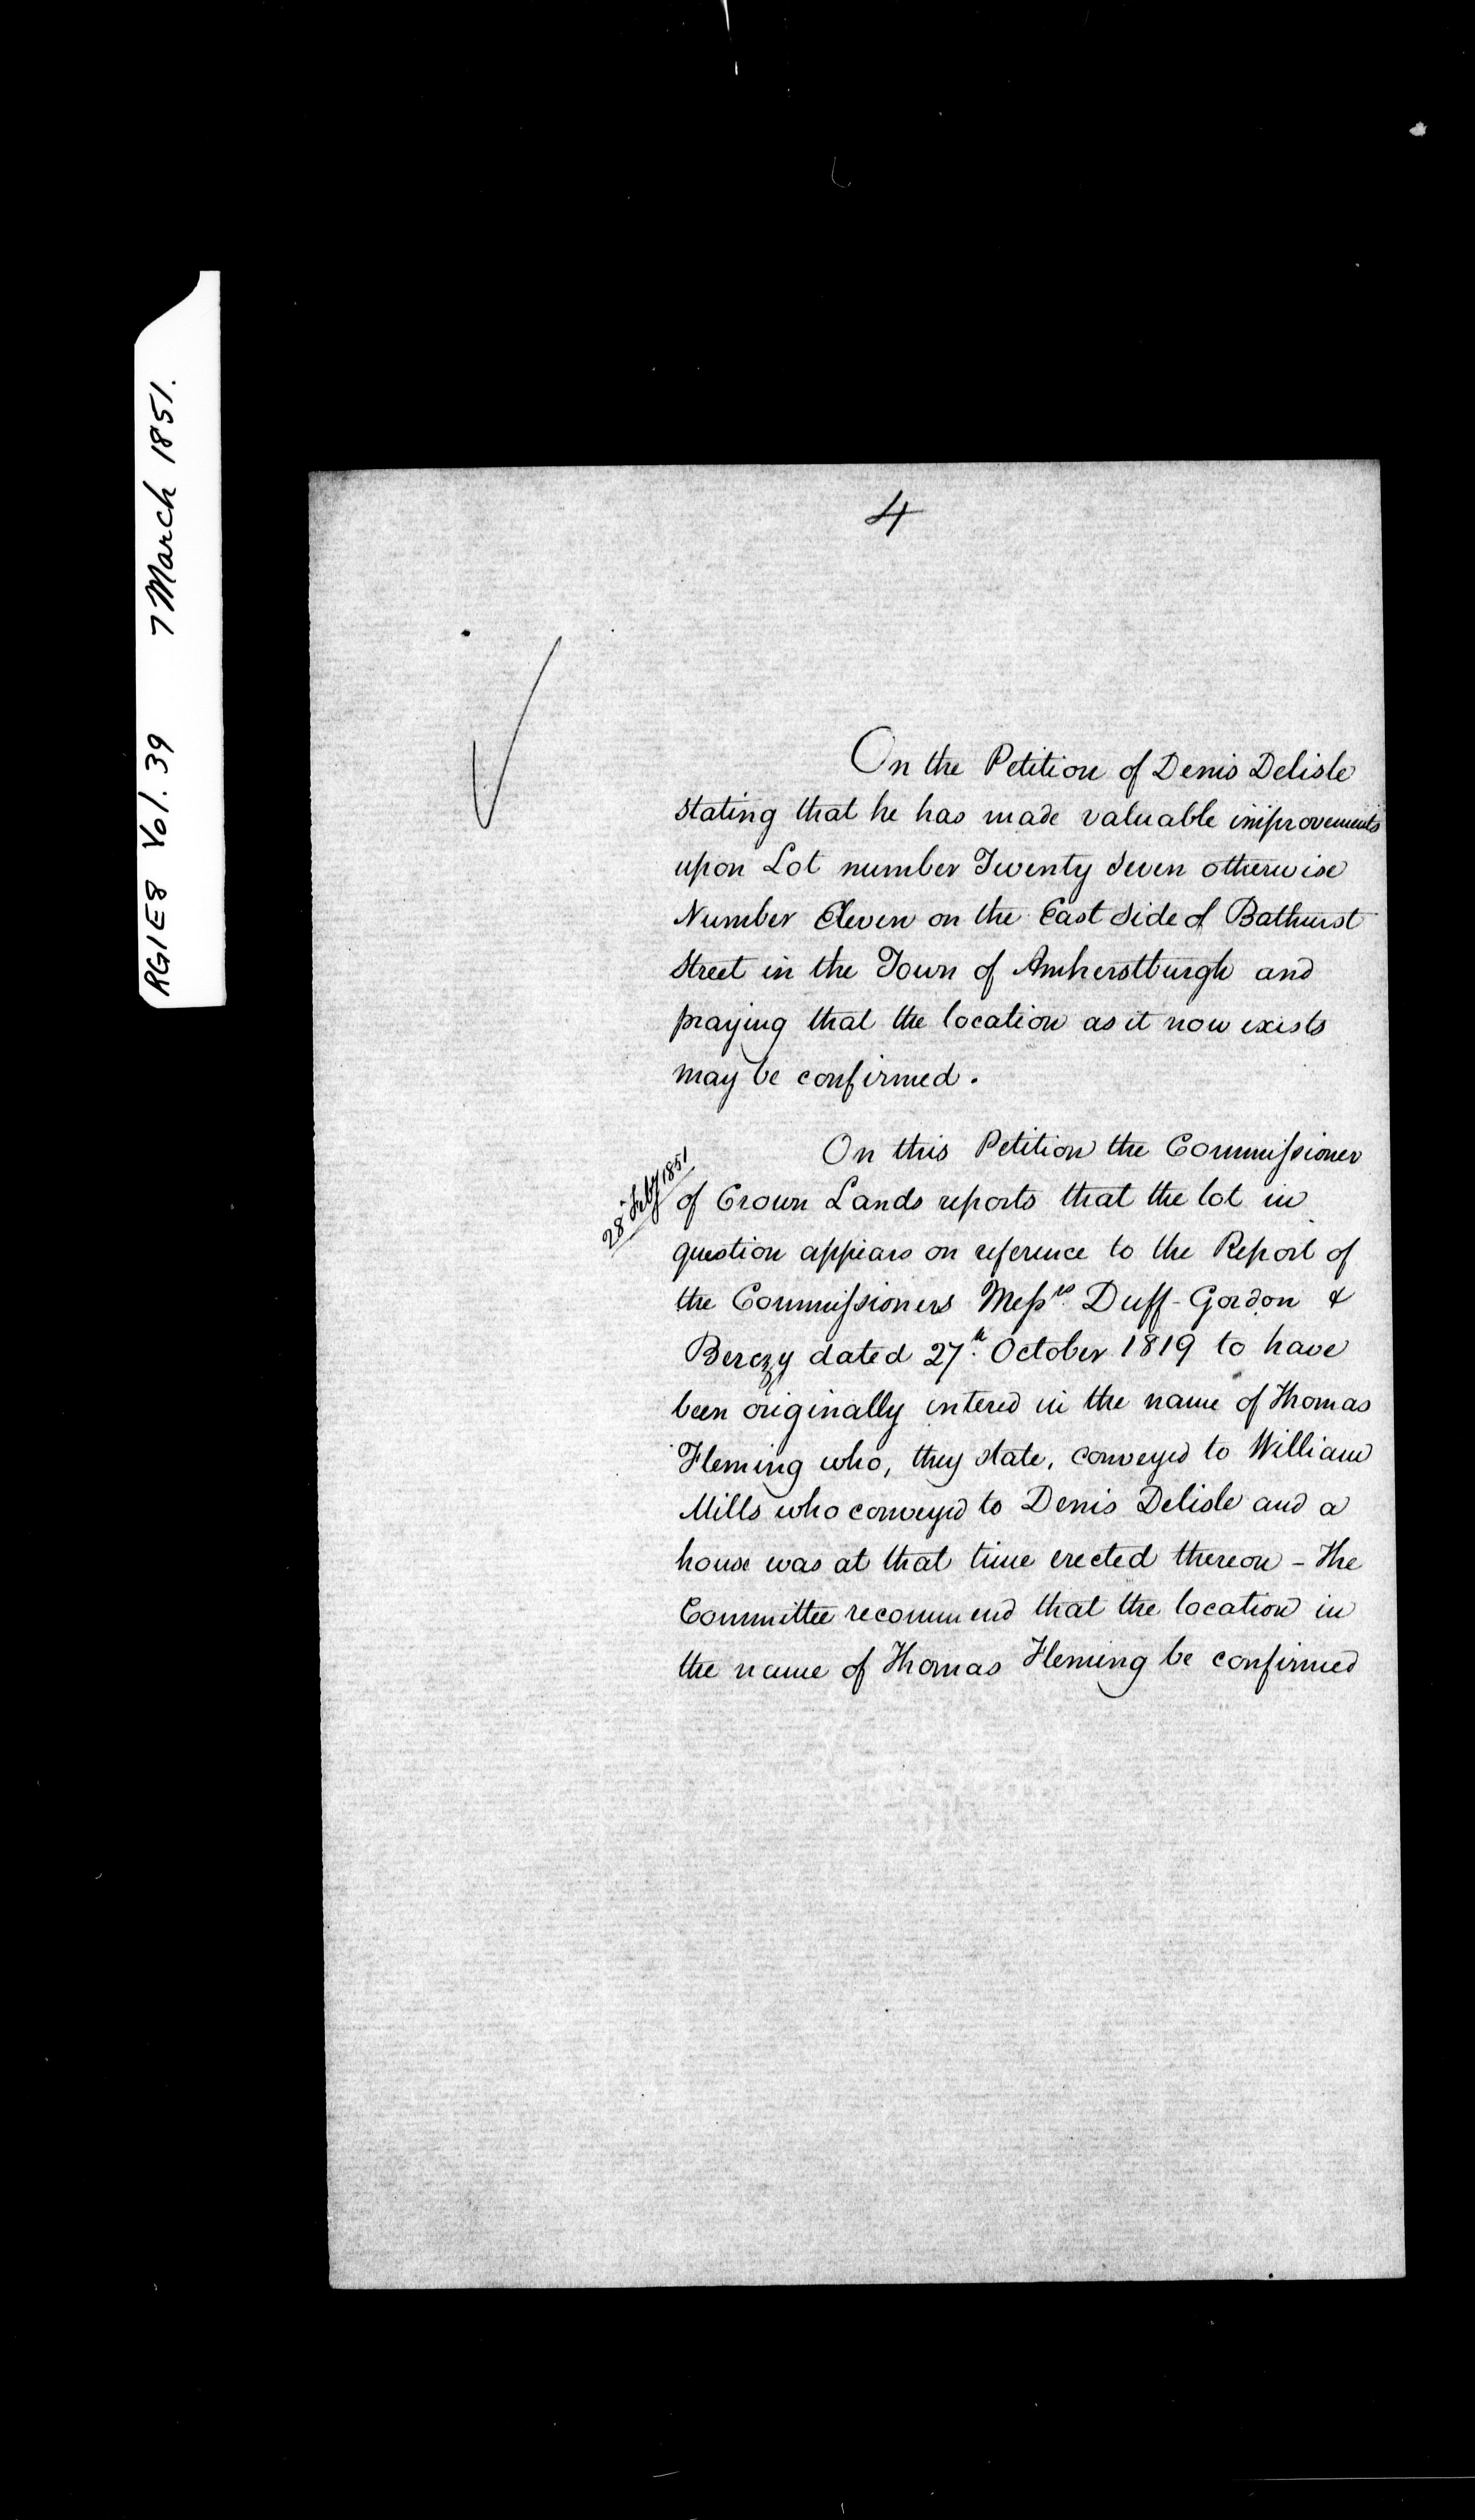 RG1E8 Vol. 39 7 March 1851.
4
On the Petition of Denis Delisle
stating that he has made valuable improvements
upon Lot number Twenty Seven otherwise
Number Eleven on the East Side of Bathurst
Street in the Town of Amherstburgh and
praying that the location as it now exists
may be confirmed.
On this Petition the Commissioner
28 Feby 1851
of Crown Lands reports that the lot in
question appears on reference to the Report of
the Commissioners Messrs. Duff-Gordon &
Berczy dated 27th. October 1819 to have
been originally entered in the name of Thomas
Fleming who, they state, conveyed to William
Mills who conveyed to Denis Delisle and a
house was at that time erected thereon - The
Committee recommend that the location in
the name of Thomas Fleming be confirmed